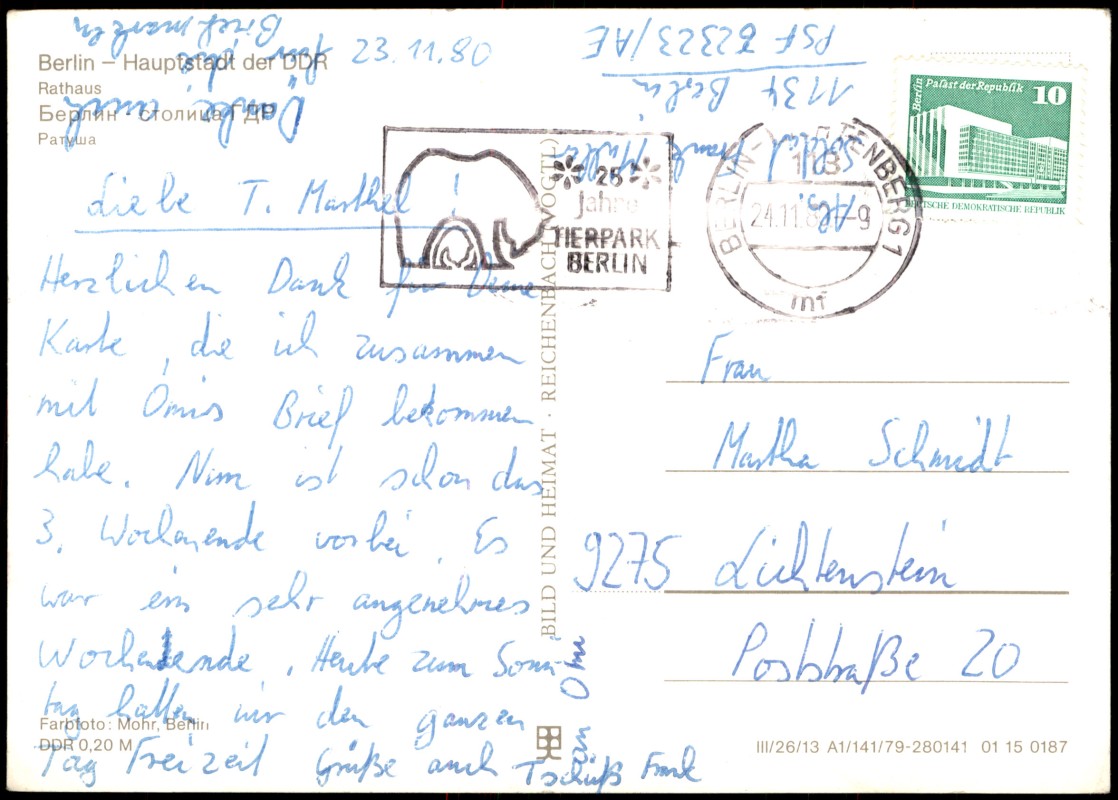 Berlin – Hauptstadt der DDR
Rathaus
Берлин - столица ГДР
Ратуша
23.11.80
Liebe T. Marthel!
Herzlichen Dank für Deine
Karte, die ich zusammen
mit Omis Brief bekommen
habe. Nun ist schon das
3. Wochenende vorbei. Es
war ein sehr angenehmes
Wochenende. Heute zum Sonn-
tag hatten wir den ganzen
Tag Freizeit Grüße auch
an Omi
Tschüß Frank
Danke auch
für die
Briefmarken
Farbfoto: Mohr, Berlin
DDR 0,20 M
BILD UND HEIMAT · REICHENBACH (VOGTL)
25
Jahre
TIERPARK
BERLIN
BERLIN-LICHTENBERG 1
113
24.11.80-9
mf
Berlin Palast der Republik 10
DEUTSCHE DEMOKRATISCHE REPUBLIK
Abs.
Soldat Frank Müller
1134 Berlin
PSF 62323/AE
Frau
Martha Schmidt
9275 Lichtenstein
Poststraße 20
III/26/13 A1/141/79-280141 01 15 0187